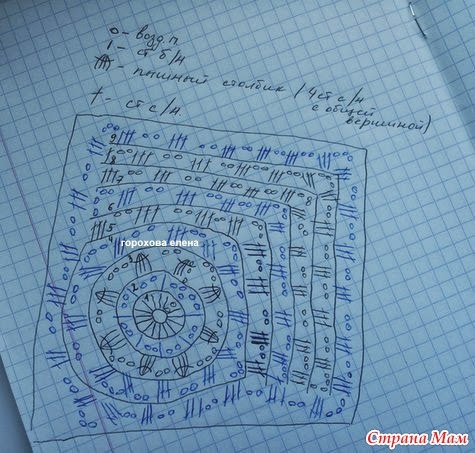 o - возд. п
ı - ст б/н
- пышный столбик (4 ст с/н
с общей
вершиной)
† - ст с/н.
9
8
7
8
6
5
4
горохова елена
3
2
1
Страна Мам